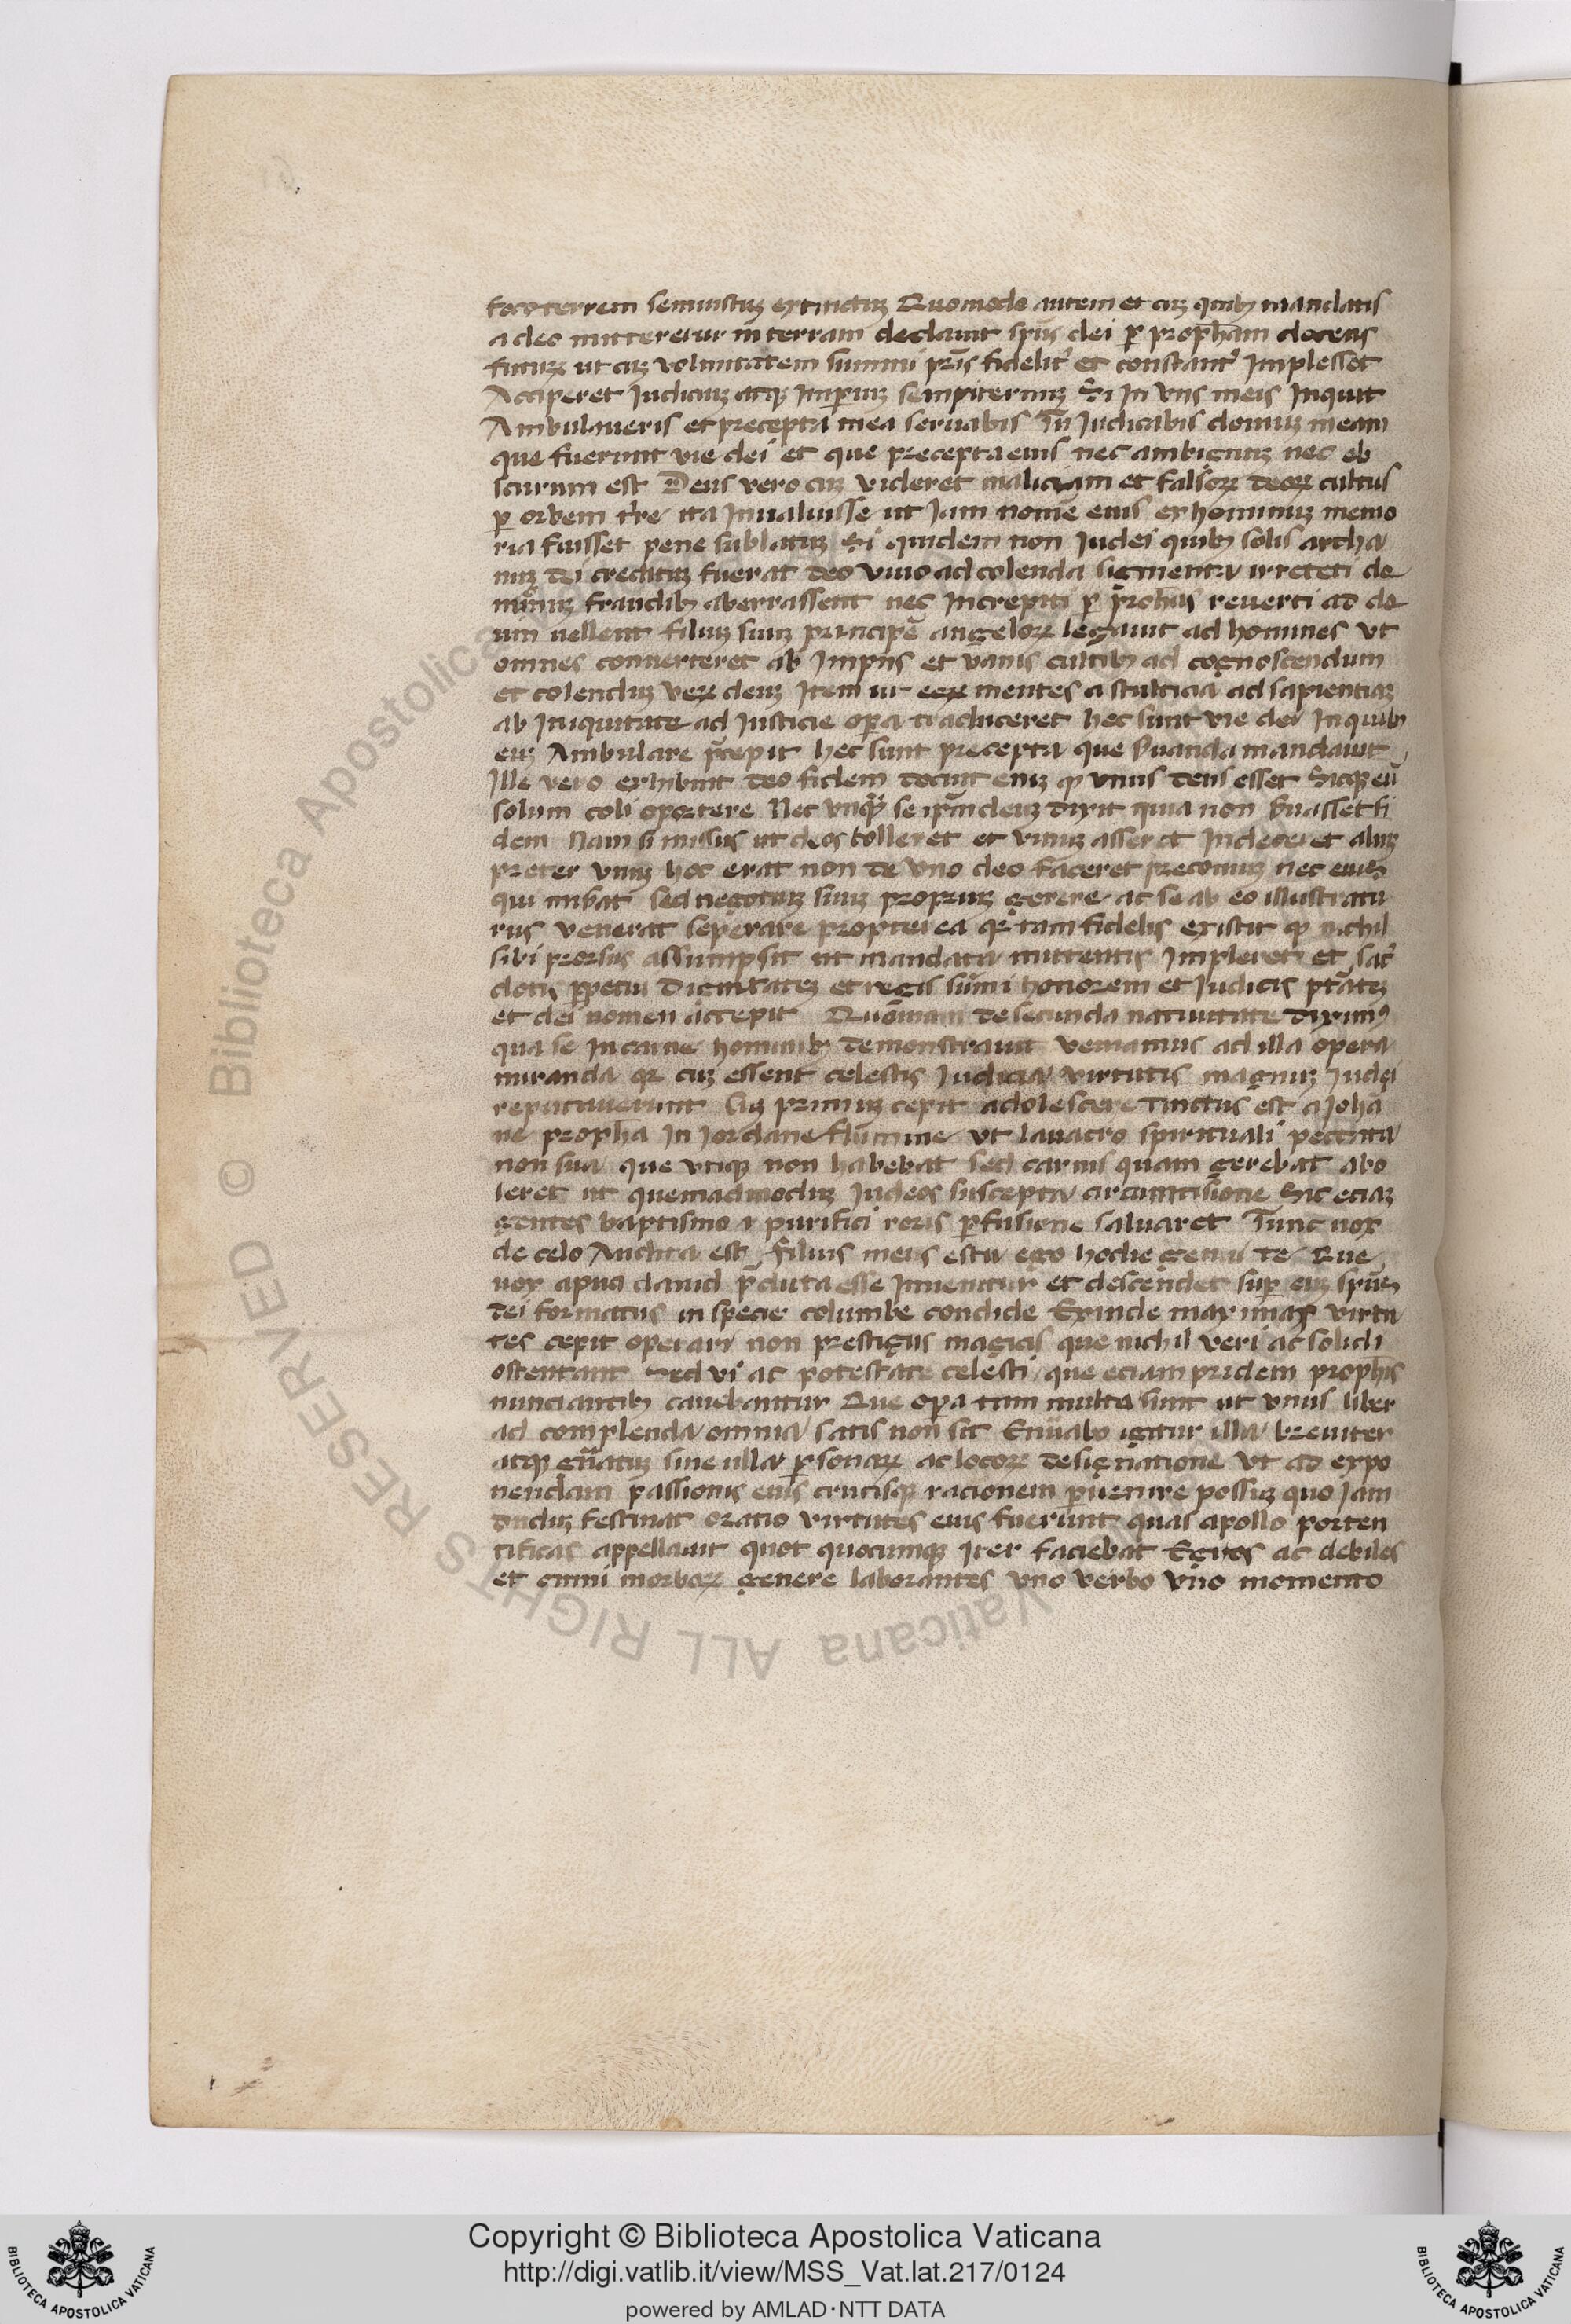 focyterrem semiustuʒ extinctuʒ Quomodo autem et cuʒ quibꝫ mandatis
a deo mitteretur in terram declarauit spūs dei ꝑ prophām docens
futuꝝ ut cuʒ voluntatem summi pr̄is fidelit᷑ et constant᷑ Implesset
Acciperet Iudiciuʒ atqꝫ Imꝑiuʒ sempiternuʒ Si In viis meis Inquit
Ambulaueris et precepta mea seruabis Tu Iudicabis domuʒ meam
que fuerunt vie dei et que precepta eius nec ambiguuʒ nec ob
scurum est Deus vero cuʒ videret maliciam et falsoꝝ deoꝝ cultus
ꝑ orbem t᷑re ita Inualuisse ut Iam nomē eius ex hominuʒ memo
ria fuisset pene sublatuʒ Si quidem non Iudei quibꝫ solis archa
nuʒ dei creditum fuerat deo viuo ad colenda figmenta irreteti de
monuʒ fraudibꝫ aberrassent nec Increpiti ꝑ prophās reuerti ad de
um uellent filiuʒ suuʒ principē angeloꝝ legauit ad homines vt
omnes conuerteret ab Impiis et vanis cultibꝫ ad cognoscendum
et colenduʒ veꝝ deuʒ Item ut eoꝝ mentes a stulticia ad sapientiaʒ
ab Iniquitate ad Iusticie oꝑa traduceret hec sunt vie dei In quibꝫ
euʒ Ambulare p̄cepit hec sunt precepta que s̄uanda mandauit
Ille vero exhibuit deo fidem docuit eniʒ ꝙ vnus deus esset Sicqꝫ eū
solum coli oportere Nec vnqᷓ se ipsum deuʒ dixit quia non s̄uasset fi
dem Nam si missus ut deos tolleret et vnuʒ assereret Induceret aliuʒ
preter vnuʒ hoc erat non de vno deo faceret preconiuʒ nec eius
qui mibat sed negociuʒ suuʒ propriuʒ gerere ac se ab eo illustratu
rus venerat seperare propterea qꝛ tam fidelis existit ꝙ nichil
sibi prorsus assumpsit ut mandata mittentis Impleret et sac᷑
dotis ꝑpetui dignitateʒ et regis sūmi honorem et Iudicis ptāteʒ
et dei nomen accepit Quoniam de secunda natiuitate diximꝰ
qua se In carne hominibꝫ demonstrauit veniamus ad illa opera
miranda qꝛ cuʒ essent celestis Iudicia virtutis magnuʒ Iudei
reputauerunt Cuʒ primuʒ cepit adolescere tinctus est a Johā
ne prophā In Jordane flumine vt lauacro spirituali peccata
non sua que vtiqꝫ non habebat sed carnis quam gerebat abo
leret ut quemadmoduʒ Iudeos suscepta circumcisione Sic eciaʒ
gentes baptismo i purifici roris ꝑfusione saluaret Tunc uox
de celo Audita est filius meus es tu ego hodie genui te Que
uox apud dauid p̄dicta esse Inuenitur et descendet suꝑ euʒ spūs
dei formatus in specie columbe condide Exinde maximas virtu
tes cepit operari non prestigiis magicis que nichil veri ac solidi
ostentant Sed vi ac potestate celesti que eciam pridem prophīs
nunciantibꝫ canebantur Que oꝑa tam multa sunt ut vnus liber
ad complenda omnia satis non sit Enūabo igitur illa breuiter
atqꝫ gn̄atiʒ sine ulla ꝑsonaꝝ ac locoꝝ designatione vt ad expo
nendam passionis eius crucisqꝫ racionem ꝑuenire possiʒ quo Iam
duduʒ festinat oratio virtutes eius fuerunt quas apollo porten
tificas appellauit quot quocumqꝫ Iter faciebat Egros ac debiles
et omni morboꝝ genere laborantes vno verbo vno momento
Biblioteca Apostolica Vaticana ALL RIGHTS RESERVED ©
Copyright © Biblioteca Apostolica Vaticana
http://digi.vatlib.it/view/MSS_Vat.lat.217/0124
powered by AMLAD·NTT DATA
BIBLIOTECA APOSTOLICA VATICANA
BIBLIOTECA APOSTOLICA VATICANA